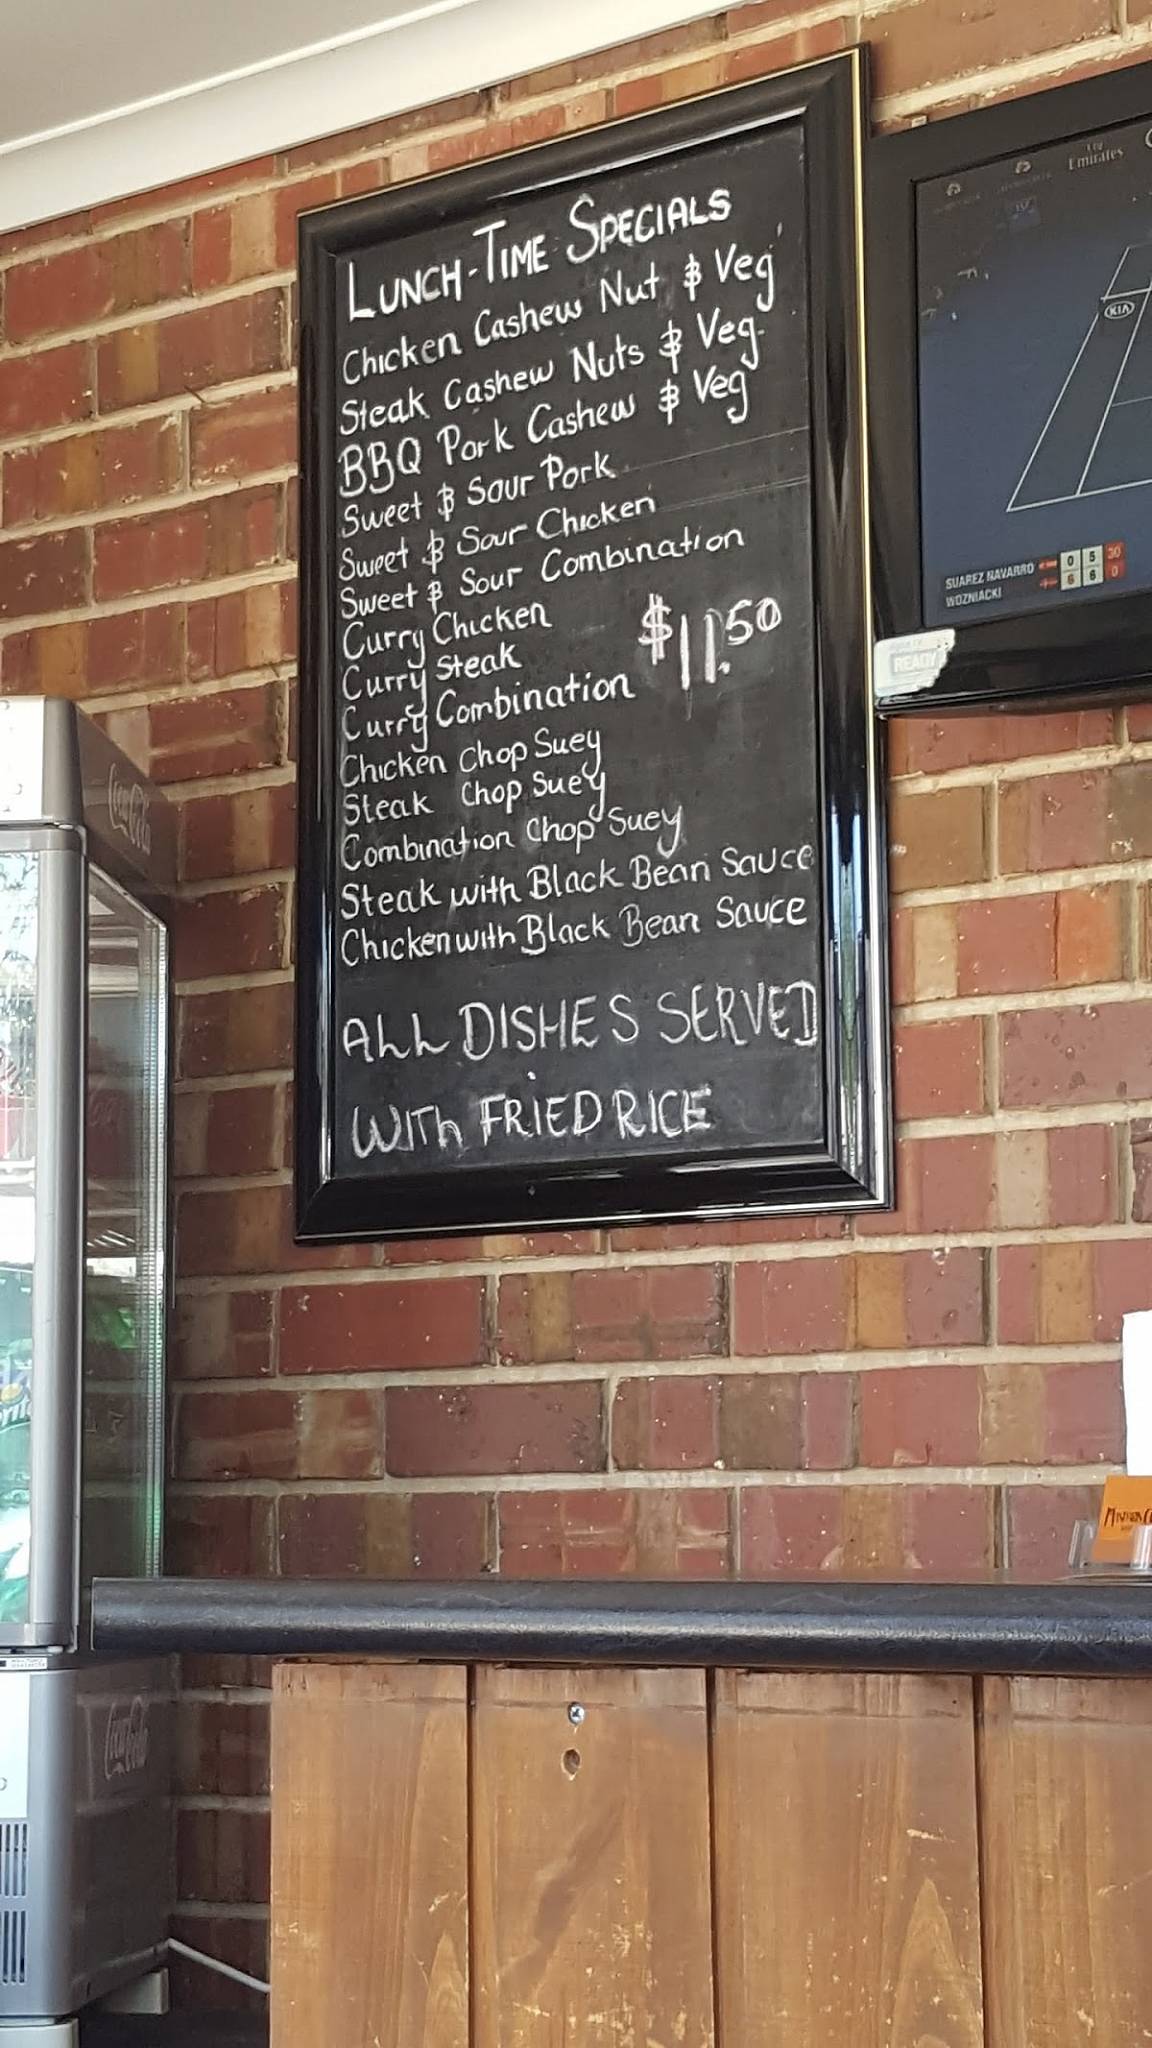 LUNCH-TIME SPECIALS
Chicken Cashew Nut & Veg
Steak Cashew Nuts & Veg.
BBQ Pork Cashew & Veg
Sweet & Sour Pork
Sweet & Sour Chicken
Sweet & Sour Combination
Curry Chicken
Curry Steak
Curry Combination
$11.50
Chicken Chop Suey
Steak Chop Suey
Combination Chop Suey
Steak with Black Bean Sauce
Chicken with Black Bean Sauce
ALL DISHES SERVED
WITh FRIED RICE
Fly
Emirates
KIA
SUAREZ NAVARRO 0 5 30
WOZNIACKI 6 6 0
READY
Coca-Cola
Coca-Cola